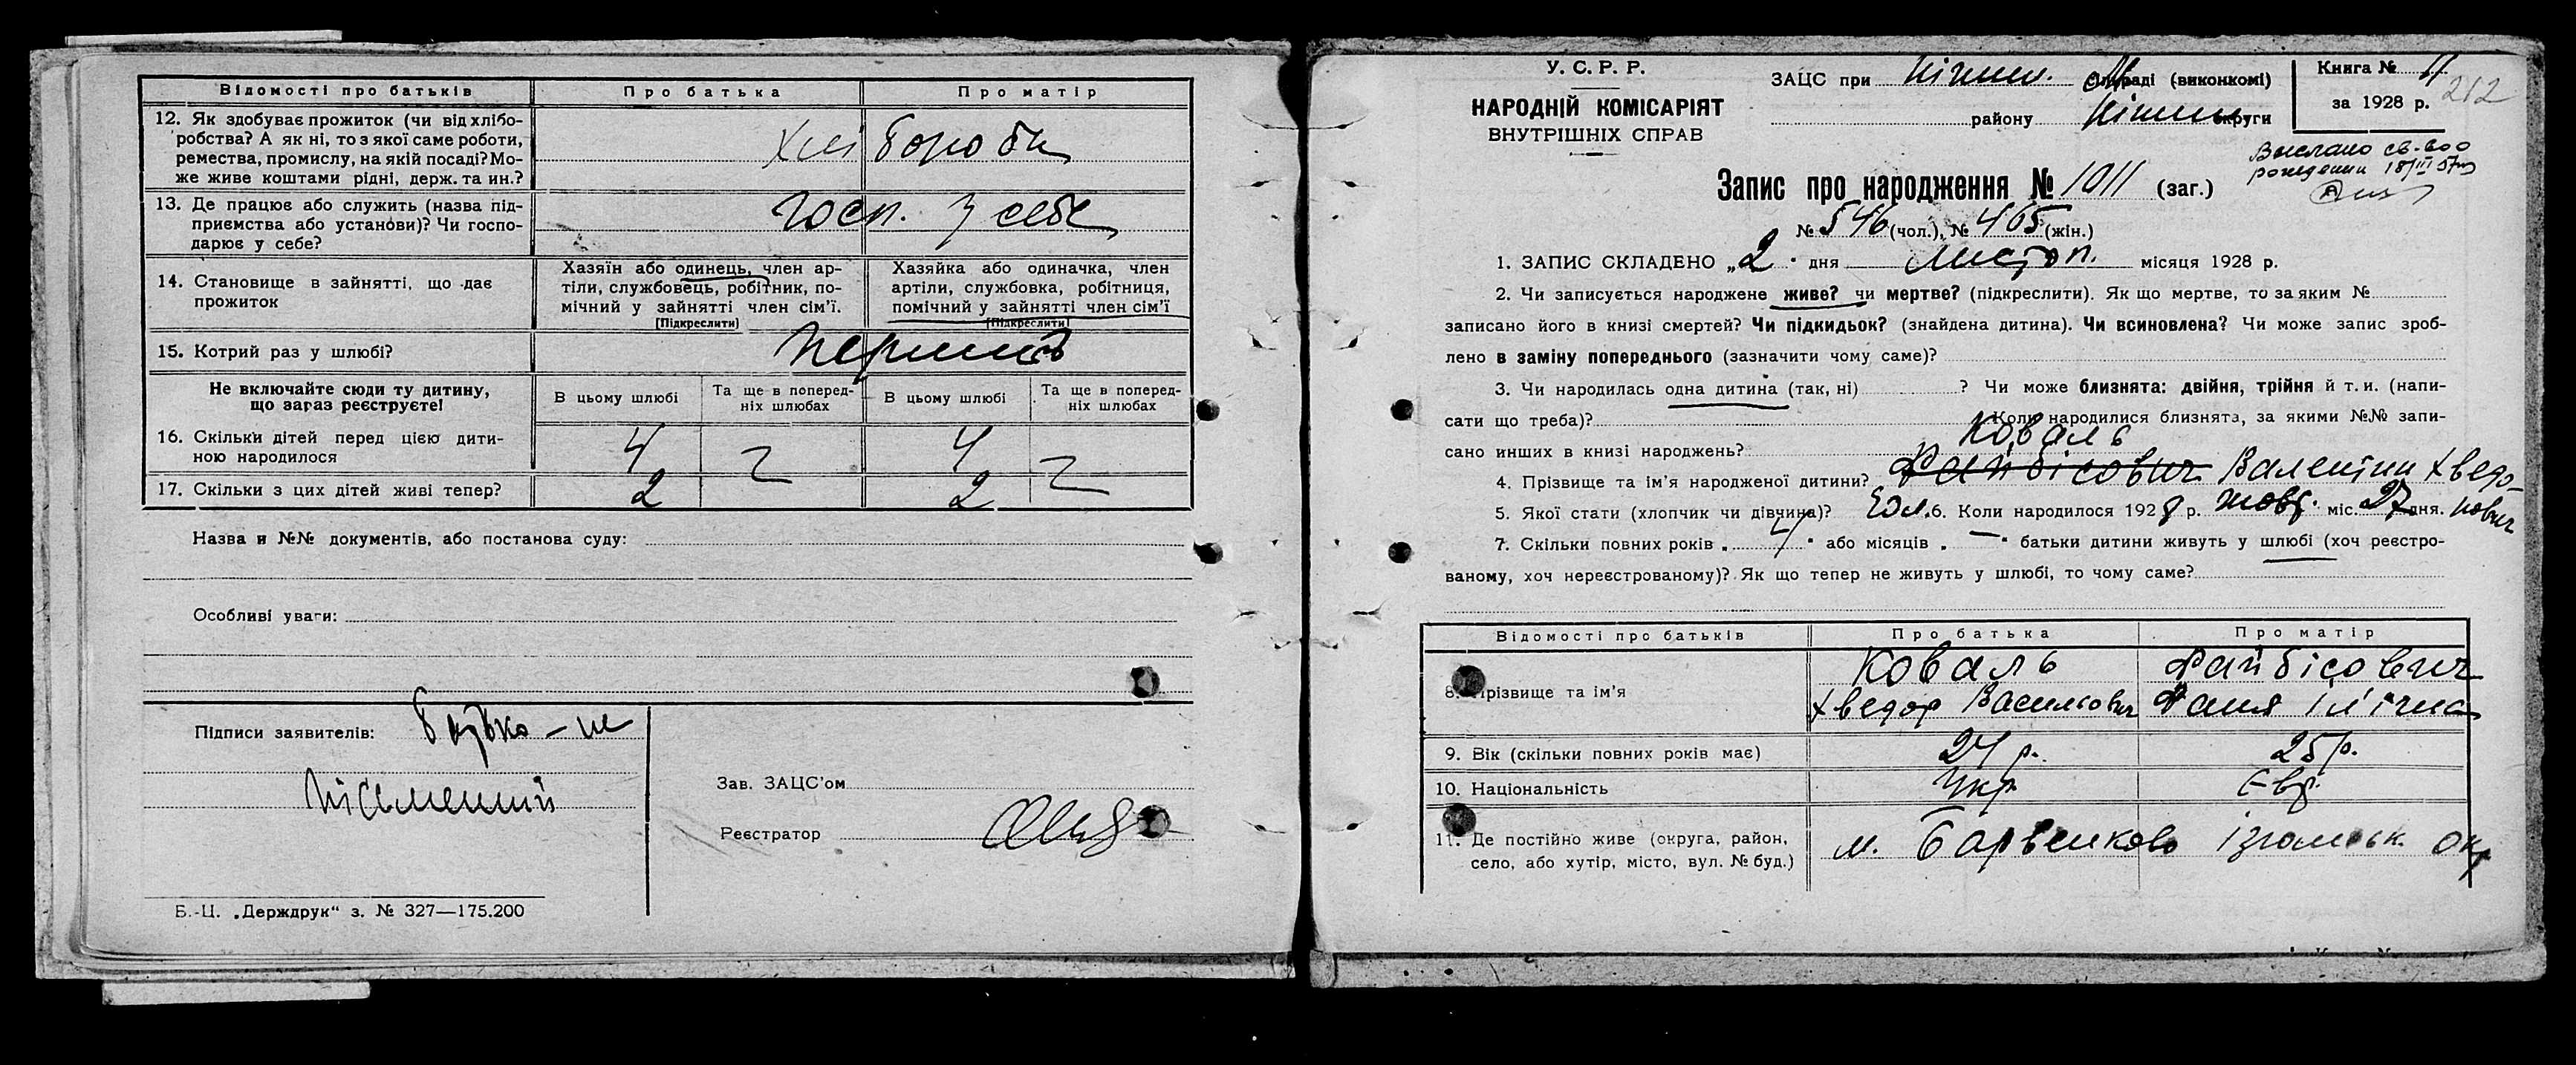 Відомості про батьків
Про батька
Про матір
12. Як здобуває прожиток (чи від хлібо-
робства? А як ні, то з якої саме роботи,
ремества, промислу, на якій посаді? Мо-
же живе коштами рідні, держ. та ин.?
Хлібороби
13. Де працює або служить (назва під-
приємства або установи)? Чи госпо-
дарює у себе?
госп. у себе
14. Становище в зайнятті, що дає
прожиток
Хазяїн або одинець, член ар-
тілі, службовець, робітник, по-
мічний у зайнятті член сім'ї.
[Підкреслити]
Хазяйка або одиначка, член
артілі, службовка, робітниця,
помічний у зайнятті член сім'ї
[Підкреслити]
15. Котрий раз у шлюбі?
Не включайте сюди ту дитину,
що зараз реєструєте!
В цьому шлюбі
Та ще в поперед-
ніх шлюбах
В цьому шлюбі
Та ще в поперед-
ніх шлюбах
16. Скільки дітей перед цією дити-
ною народилося
4
4
17. Скільки з цих дітей живі тепер?
2
2
Назва и №№ документів, або постанова суду:
Особливі уваги:
Підписи заявителів: батько - не
письменний
Зав. ЗАЦС'ом
Реєстратор
Б.-Ц. „Держдрук“ з. № 327—175.200
У. С. Р. Р.
НАРОДНІЙ КОМІСАРІЯТ
ВНУТРІШНІХ СПРАВ
ЗАЦС при (виконкомі)
району округи
Книга № 11
212
за 1928 р.
Выслано св-во о
рождении 18/III 57
Запис про народження № 1011 (заг.)
№ 546 (чол.), № 465 (жін.)
1. ЗАПИС СКЛАДЕНО „2“ дня листоп. місяця 1928 р.
2. Чи записується народжене живе? чи мертве? (підкреслити). Як що мертве, то за яким №
записано його в книзі смертей? Чи підкидьок? (знайдена дитина). Чи всиновлена? Чи може запис зроб-
лено в заміну попереднього (зазначити чому саме)?
3. Чи народилась одна дитина (так, ні) ? Чи може близнята: двійня, трійня й т. и. (напи-
сати що треба)? Коли народилися близнята, за якими №№ запи-
сано инших в книзі народжень?
Коваль
4. Прізвище та ім'я народженої дитини? Файбісович Валентин Хведо-
рович
5. Якої стати (хлопчик чи дівчина)? чол. 6. Коли народилося 1928 р. жовт. міс. 27 дня.
7. Скільки повних років „4“ або місяців „—“ батьки дитини живуть у шлюбі (хоч реєстро-
ваному, хоч нереєстрованому)? Як що тепер не живуть у шлюбі, то чому саме?
Відомості про батьків
Про батька
Про матір
8. Прізвище та ім'я
Коваль
Хведор Васильович
Файбісович
Фаня Іл'їчна
9. Вік (скільки повних років має)
24 р.
25 р.
10. Національність
Укр.
Євр.
11. Де постійно живе (округа, район,
село, або хутір, місто, вул. № буд.)
м. Барвенково Ізюмськ. окр